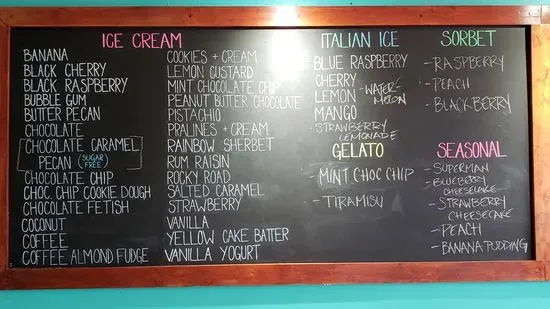 ICE CREAM
BANANA
BLACK CHERRY
BLACK RASPBERRY
BUBBLE GUM
BUTTER PECAN
CHOCOLATE
CHOCOLATE CARAMEL
PECAN (SUGAR FREE)
CHOCOLATE CHIP
CHOC. CHIP COOKIE DOUGH
CHOCOLATE FETISH
COCONUT
COFFEE
COFFEE ALMOND FUDGE
COOKIES + CREAM
LEMON CUSTARD
MINT CHOCOLATE CHIP
PEANUT BUTTER CHOCOLATE
PISTACHIO
PRALINES + CREAM
RAINBOW SHERBET
RUM RAISIN
ROCKY ROAD
SALTED CARAMEL
STRAWBERRY
VANILLA
YELLOW CAKE BATTER
VANILLA YOGURT
ITALIAN ICE
BLUE RASPBERRY
CHERRY
LEMON - WATER-
MELON
MANGO
- STRAWBERRY
LEMONADE
GELATO
- MINT CHOC CHIP
- TIRAMISU
SORBET
- RASPBERRY
- PEACH
- BLACKBERRY
SEASONAL
- SUPERMAN
- BLUEBERRY
CHEESECAKE
- STRAWBERRY
CHEESECAKE
- PEACH
- BANANA PUDDING